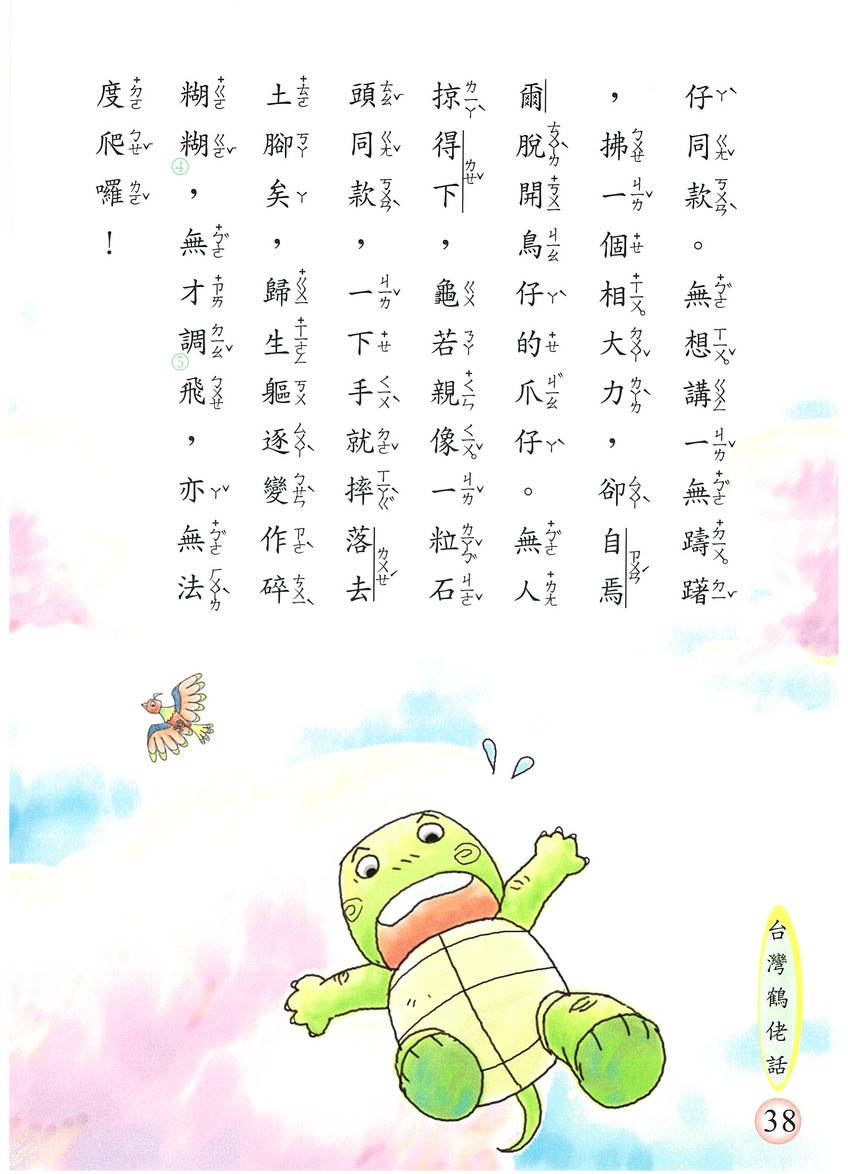 仔同款。無想講一無躊躇
，拂一個相大力，卻自焉
爾脫開鳥仔的爪仔。無人
掠得下，龜若親像一粒石
頭同款，一下手就摔落去
土腳矣，歸生軀逐變作碎
糊糊④，無才調⑤飛，亦無法
度爬囉！
台灣鶴佬話
38